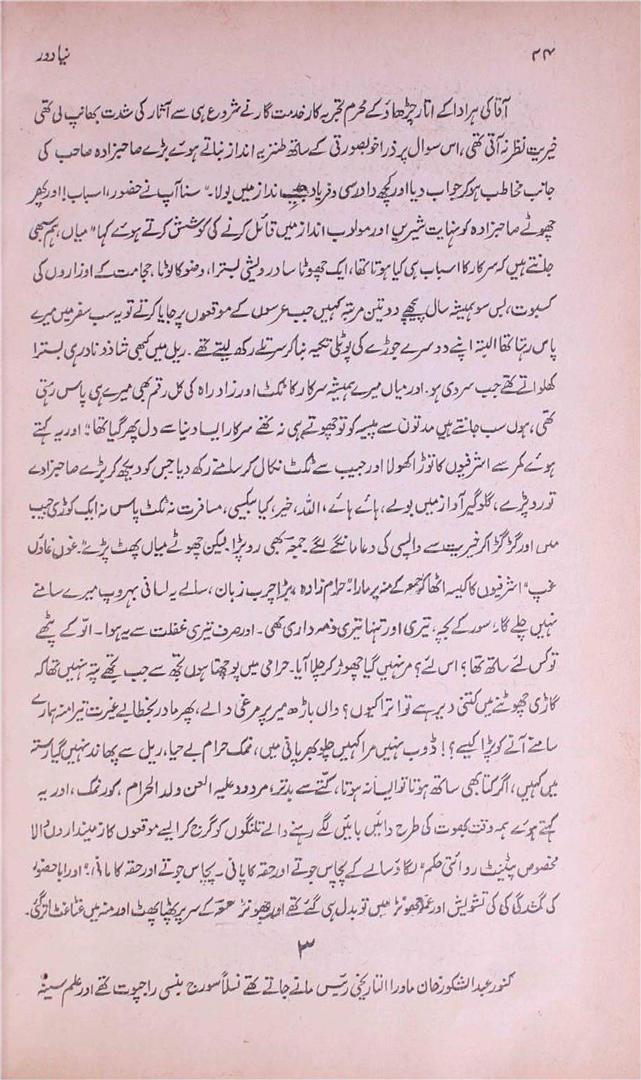 ۲۴ نیا دور
آقا کی ہر ادا کے اتار چڑھاؤ کے محرم تجربہ کار خدمت گار نے شروع ہی سے آثار کی شدت بھانپ لی تھی
خیریت نظر نہ آتی تھی، اس سوال پر ذرا خوبصورتی کے ساتھ طنزیہ انداز بناتے ہوئے بڑے صاحبزادہ صاحب کی
جانب مخاطب ہو کر جواب دیا اور کچھ داد رسی و فریاد انداز میں بولا۔ "سنا آپ نے حضور، اسباب! اور پھر
چھوٹے صاحبزادہ کو نہایت شیریں اور مرلوب انداز میں قائل کرنے کی کوشش کرتے ہوئے کہا "میاں، ہم سبھی
جانتے ہیں کہ سرکار کا اسباب ہی کیا ہوتا تھا، ایک چھوٹا سا درویشی بسترا، وضو کا لوٹا، حجامت کے اوزاروں کی
کسبوت، بس سو ہمیشہ سال پیچھے دو تین مرتبہ کہیں جب عرسوں کے موقعوں پر جایا کرتے تو یہ سب سفر میں میرے
پاس رہتا تھا البتہ اپنے دوسرے جوڑے کی پوٹلی تکیہ بنا کر سرتلے رکھ لیتے تھے۔ ریل میں کبھی شاذ و نادر ہی بسترا
کھلواتے تھے جب سردی ہو۔ اور میاں میرے ہمیشہ سرکار کا ٹکٹ اور زاد راہ کی کل رقم بھی میرے ہی پاس رہتی
تھی، یوں سب جانتے ہیں مدتوں سے پیسہ کو تو چھوتے ہی نہ تھے سرکار ایسا دنیا سے دل پھر گیا تھا"۔ اور یہ کہتے
ہوئے کمر سے اشرفیوں کا توڑا کھولا اور جیب سے ٹکٹ نکال کر سامنے رکھ دیا جس کو دیکھ کر بڑے صاحبزادے
تو رو پڑے، گلوگیر آواز میں بولے، ہائے ہائے، اللہ، خیر، کیا بیکسی، مسافرت نہ ٹکٹ پاس نہ ایک کوڑی جیب
میں اور گڑگڑا کر خیریت سے واپسی کی دعا مانگنے لگے۔ جمعہ بھی رو پڑا۔ لیکن چھوٹے میاں پھٹ پڑے "غوں غاؤں
غپ" اشرفیوں کا کیسہ اٹھا کر جمعہ کے منہ پر مارا "حرام زادہ، بڑا چرب زبان، سالے یہ لسانی بہروپ میرے سامنے
نہیں چلے گا، سور کے بچہ، تیری اور تنہا تیری ذمہ داری تھی۔ اور صرف تیری غفلت سے یہ ہوا۔ الو کے پٹھے
تو کس لئے ساتھ تھا؟ اس لئے؟ مر نہیں گیا چھوڑ کر چلا آیا۔ حرامی میں پوچھتا ہوں تجھ سے جب تجھے پتہ نہیں تھا کہ
گاڑی چھوٹنے میں کتنی دیر ہے تو اترا کیوں؟ داں باڑھ میر پر مرغی والے، پھر مادر بخطا بے غیرت تیرا منہ ہمارے
سامنے آنے کو پڑا کیسے؟! ڈوب نہیں مرا کہیں چلو بھر پانی میں، نمک حرام بے حیا، ریل سے پھاند نہیں گیا رستہ
میں کہیں، اگر کتا بھی ساتھ ہوتا تو ایسا نہ ہوتا، کتے سے بدتر، مردود علیہ العن ولد الحرام، کور نمک، اور یہ
کہتے ہوئے ہمہ وقت بھوت کی طرح دائیں بائیں لگے رہنے والے تلنگوں کو گرج کر ایسے موقعوں کا زمیندارون والا
مخصوص پیٹینٹ روائتی حکم "لگاؤ سالے کے پچاس جوتے اور حقہ کا پانی۔ پچاس جوتے اور حقہ کا پانی"۔ اور ابا حضور
کی گمشدگی کی تشویش اور میں تو بدل ہی گئے تھے اور کے سر پر پھٹ اور منہ میں غٹاغٹ اتر گئی۔
۳
کنور عبدالشکور خان ماورا التاریخی رئیس مانے جاتے تھے نسلاً سورج بنسی راجپوت تھے اور علم سینہ